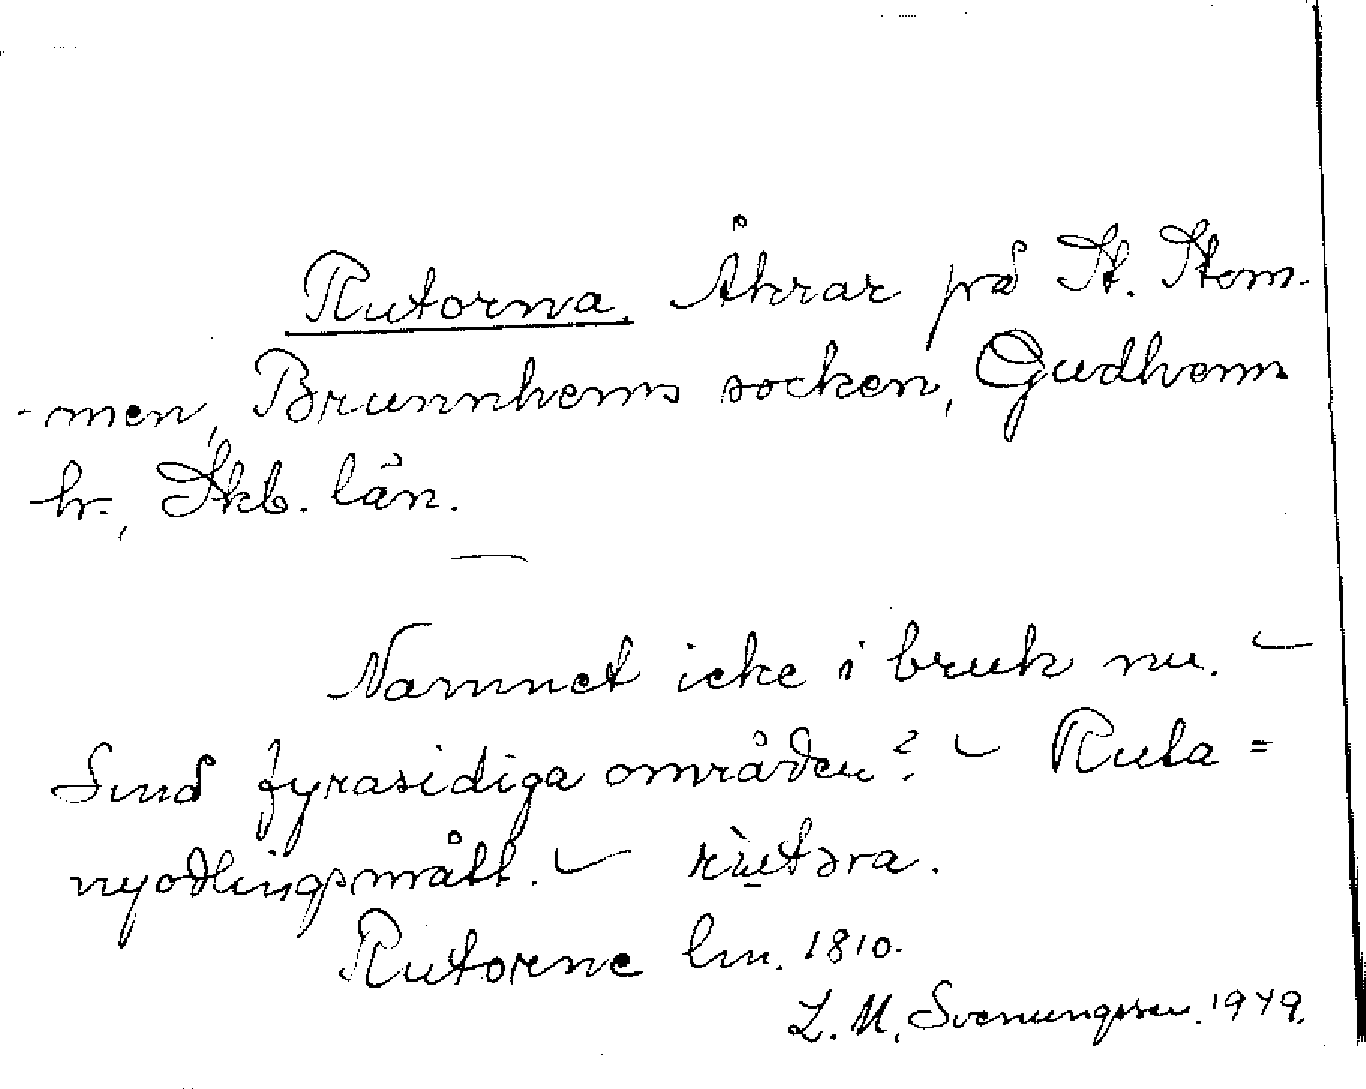 Rutorna. Åkrar på St. Stom-
-men, Brunnhems socken, Gudhems
hr., Skb. län.
—
Namnet icke i bruk nu. –
Små fyrasidiga områden? – Ruta =
nyodlingsmått. – rùtəra.
Rutorne lm. 1810.
L. M. Svenungsson. 1949.